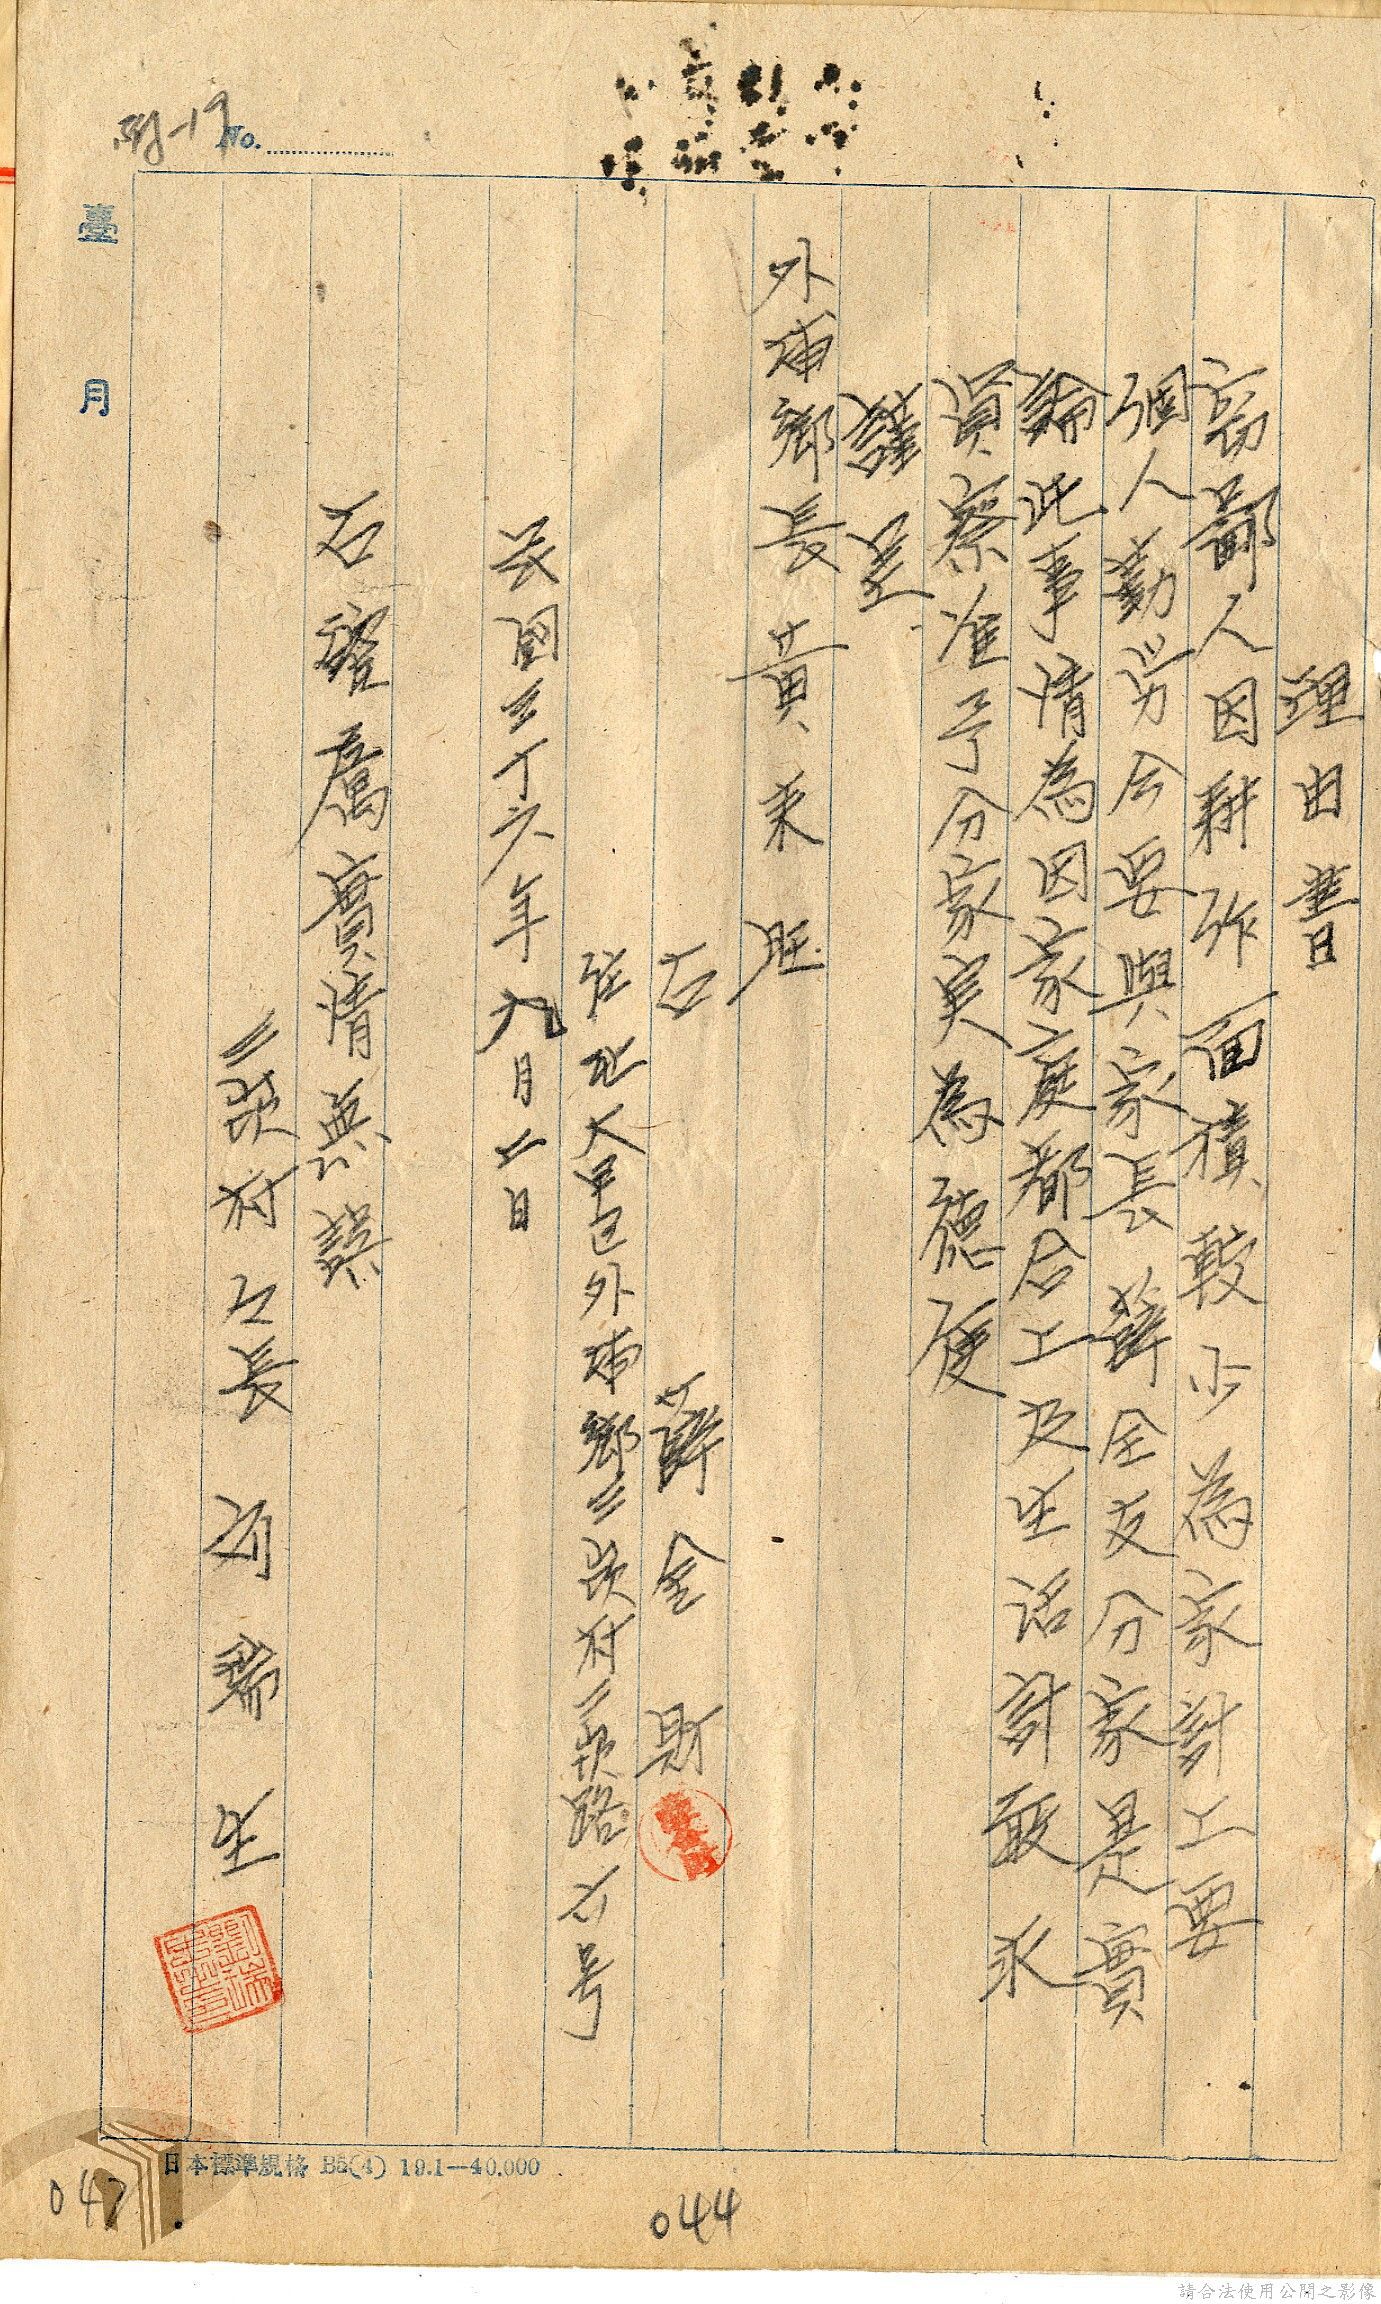 理由書
竊鄙人因耕作面積較少為家計上要
個人勤労今要與家長薛全友分家是實
論此事情為因家庭都合上及生活計敢求
員察准予分家実為德便
謹呈
外埔鄉長黃來旺
右 薛金財
住址大甲區外埔鄉三崁村三崁路六号
民國三十六年九月二日
右證屬實情無誤
三崁村村長 劉瑞生
No.
臺
月
日本標準規格 B5(4) 19.1—40.000
047
044
請合法使用公開之影像